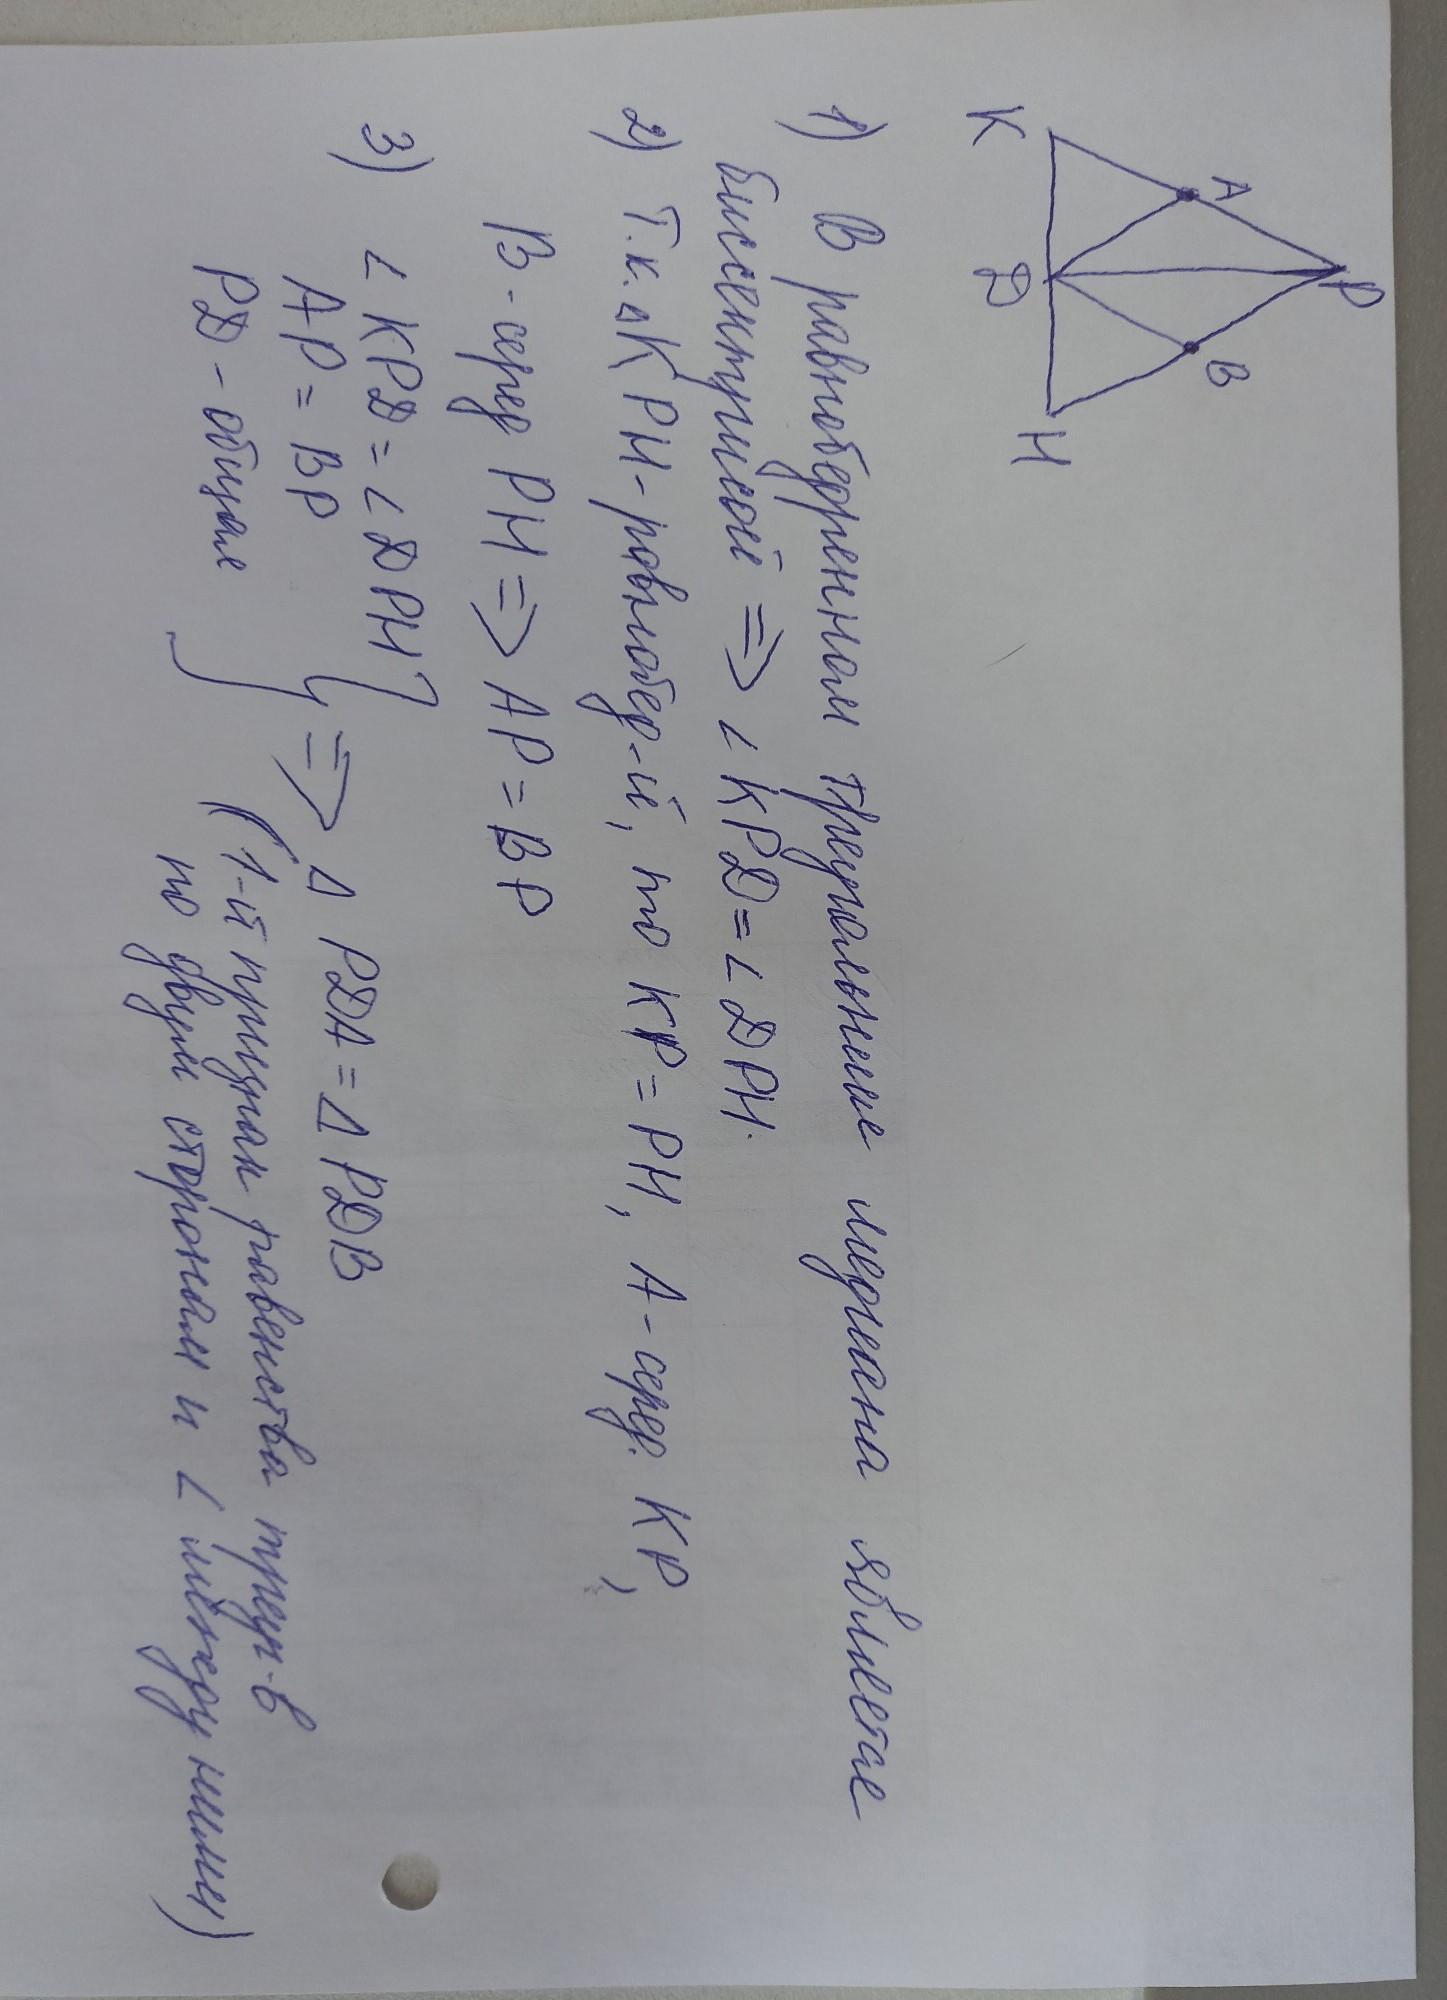 P
A
B
K
D
H
1) В равнобедренном треугольнике медиана является
биссектрисой => ∠ KPD = ∠ DPH.
2) Т.к. △KPH - равнобед-й, то KP = PH, A - серед. KP,
B - серед PH => AP = BP
3) ∠ KPD = ∠ DPH
AP = BP
PD - общая
} => △ PDA = △ PDB
(1-й признак равенства треуг-в
по двум сторонам и ∠ между ними)